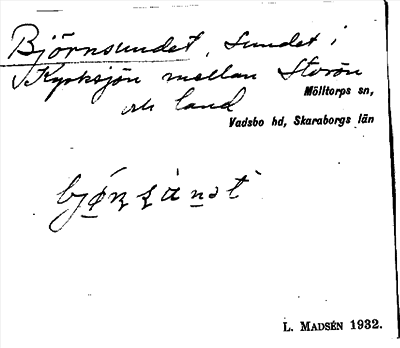 Björnsundet, sundet i
Kyrksjön mellan Storön
och land
Mölltorps sn,
Vadsbo hd, Skaraborgs län
L. MADSÉN 1932.